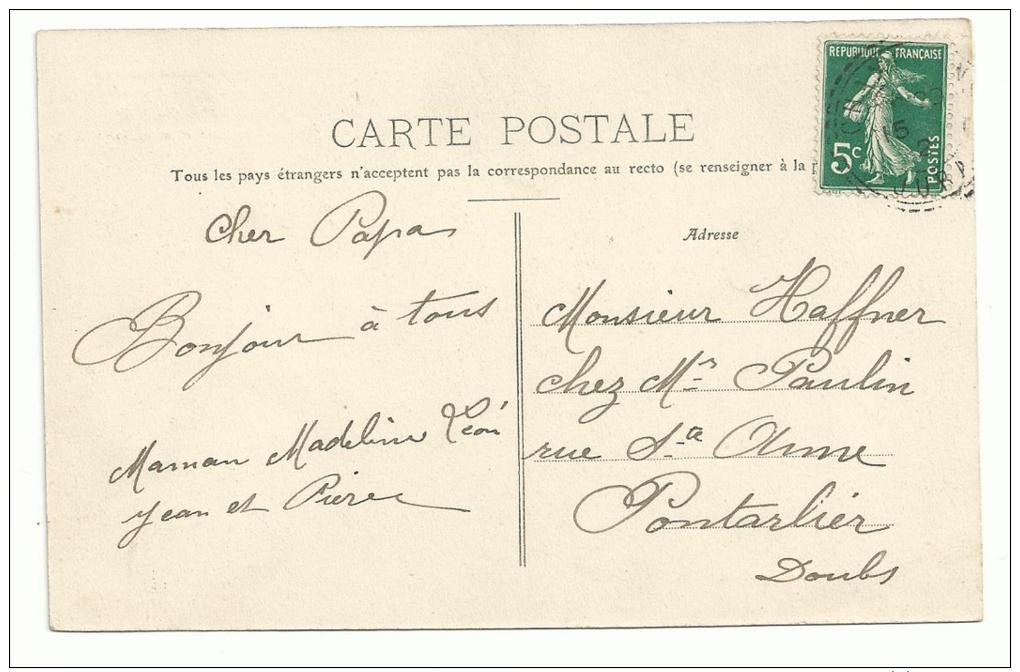 RÉPUBLIQUE FRANÇAISE
5c
POSTES
15
JURA
CARTE POSTALE
Tous les pays étrangers n'acceptent pas la correspondance au recto (se renseigner à la
Cher Papa
Bonjour à tous
Maman Madeline Léon
Jean et Piere
Adresse
Monsieur Haffner
chez Mr Paulin
rue Sa Anne
Pontarlier
Doubs